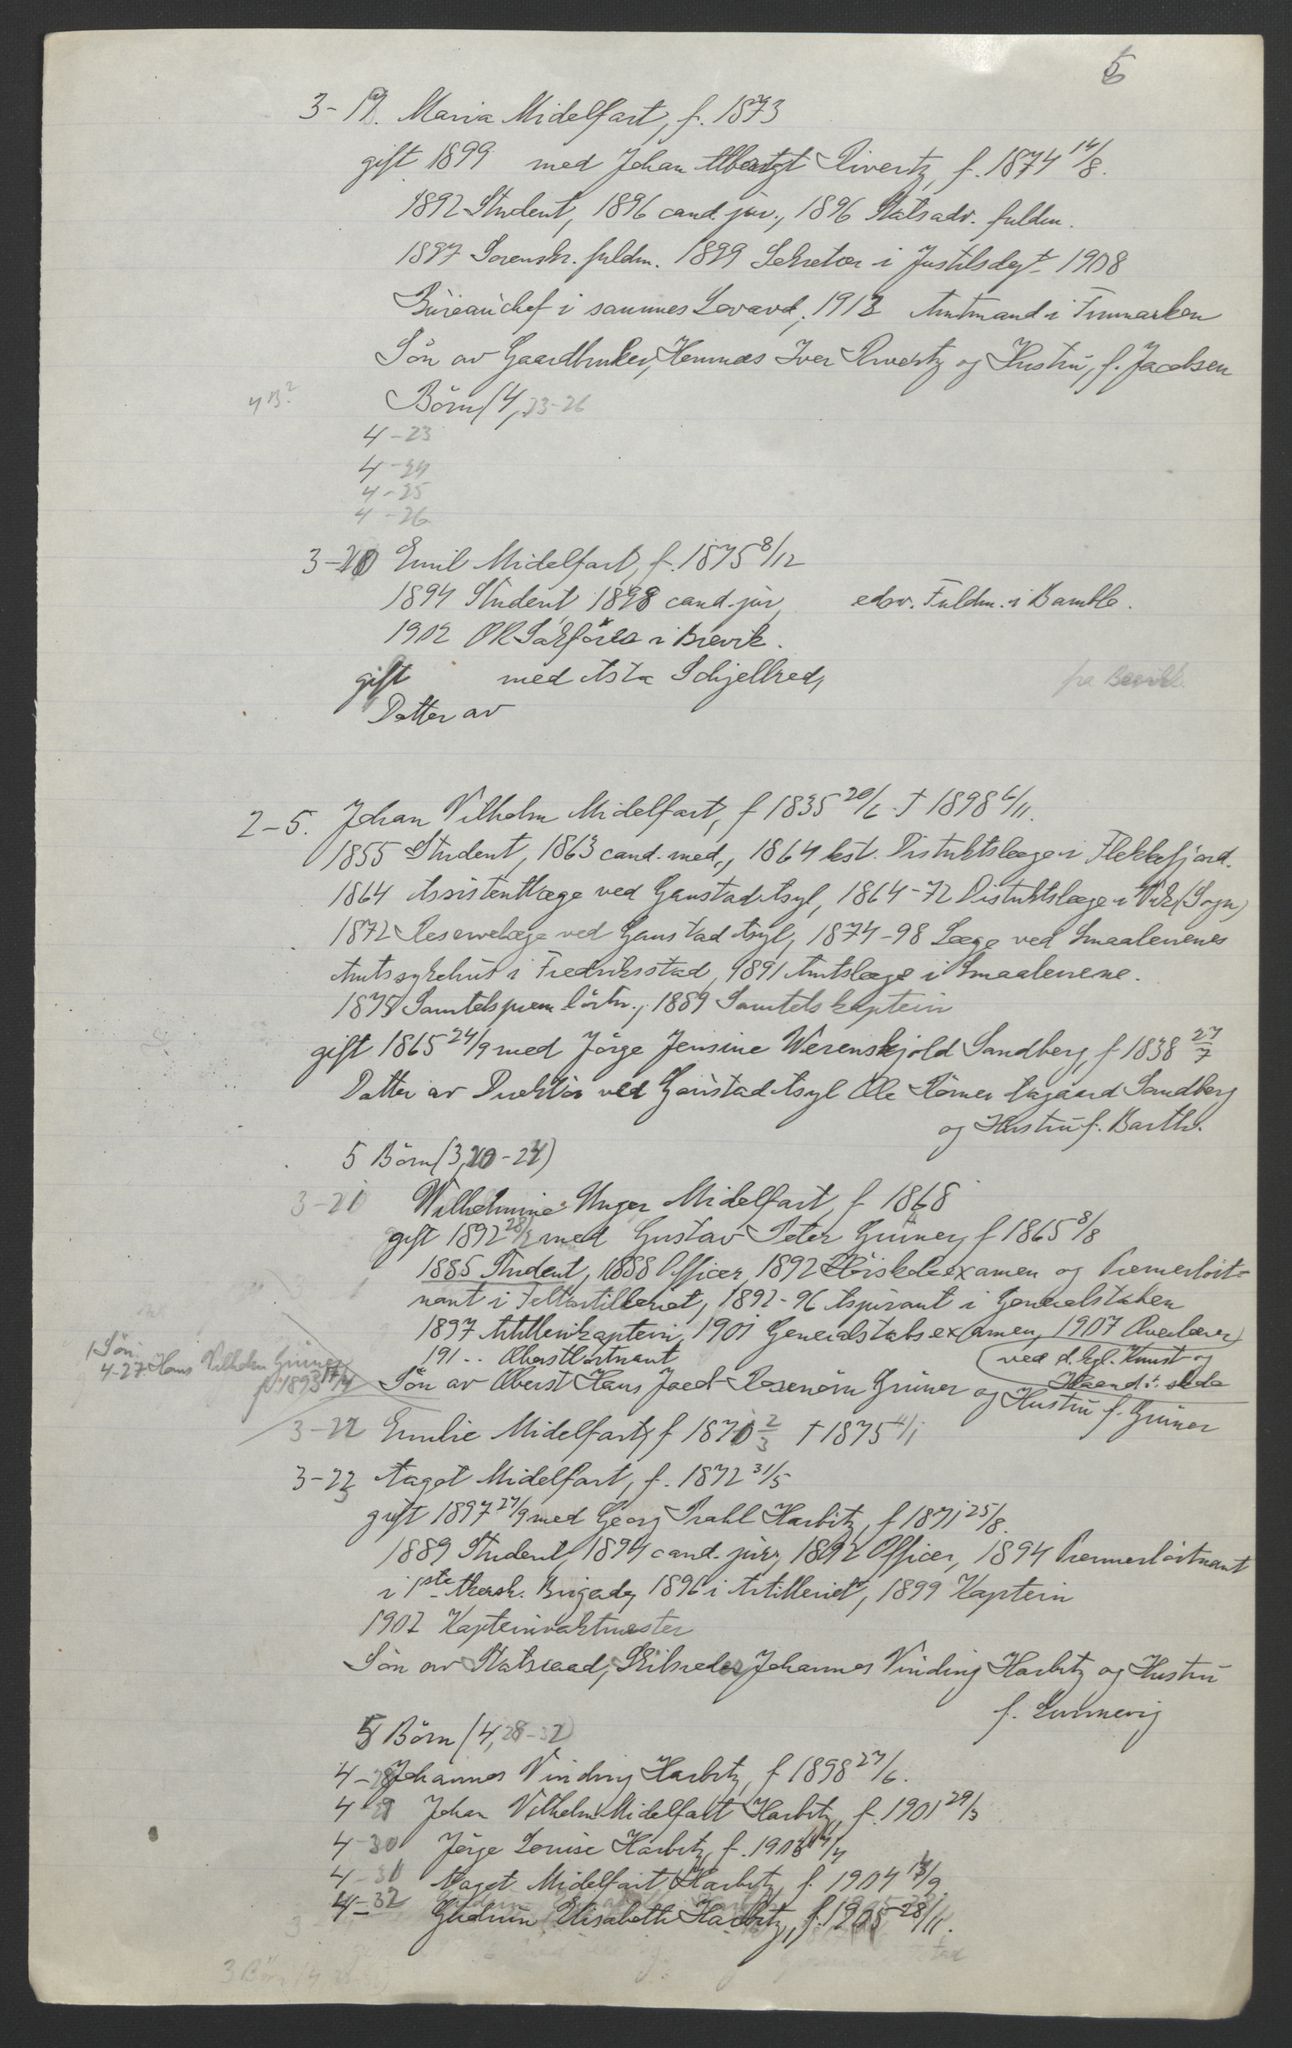 5
3-19. Maria Midelfart, f. 1873
gift 1899 med Johan Albertgt Rivertz, f. 1874 14/8.
1892 Student, 1896 cand. jur., 1896 Statsadv. fuldm.
1897 Sorenskr. fuldm. 1899 Sekretær i Justitsdept. 1908
Bureauchef i sammes Lovavd., 1912 Amtmand i Finmarken
Søn av Gaardbruker, Hemnæs Iver Rivertz og Hustru, f. Jacobsen
4 B?
Börn (4, 23-26
4-23
4-24
4-25
4-26
3-20 Emil Midelfart, f. 1875 8/12
1894 Student 1898 cand. jur, edsv. Fuldm. i Bamble.
1902 OR Sakförer i Brevik.
gift med Asta Schjelbred, fra Brevik
Datter av
2-5. Johan Vilhelm Midelfart, f 1835 20/6 † 1898 6/11.
1855 Student, 1863 cand. med., 1864 kst. Distriktslæge i Flekkefjord.
1864 Assistentlæge ved Gaustad Asyl, 1864-72 Distriktslæge i Vik (Sogn)
1872 Reservelæge ved Gaustad Asyl, 1874-98 Læge ved Smaalenenes
Amtssykehus i Fredriksstad, 1891 Amtslæge i Smaalenene.
1875 Sanitetsprem. löitn., 1889 Sanitetskaptein
gift 1865 24/9 med Jörge Jensine Werenskjold Sandberg, f 1838 27/7
Datter av Direktör ved Gaustad Asyl Ole Römer Aagaard Sandberg
og Hustru f. Barth.
5 Börn (3, 20-24)
3-21 Wilhelmine Unger Midelfart, f 1868
gift 1892 28/ med Gustav Peter Grüner, f 1865 8/8
1885 Student, 1888 Officer, 1892 Höiskoleexamen og Premierlöit-
nant i Feltartilleriet, 1892-96 Aspirant i Generalstaben
1897 Artillerikaptein, 1901 Generalstabsexamen, 1907 Overlærer
ved d. kgl. Kunst og
Haandv. skole
191.. Oberstlöitnant
1 Sön:
4-27 Hans Vilhelm Grüner
f. 1893 17/4
Sön av Oberst Hans Jacob Rosenörn Grüner og Hustru f. Grüner
3-22 Emilie Midelfart, f 1870 2/3 † 1875 4/1
3-23 Aagot Midelfart, f. 1872 31/5
gift 1897 27/9 med Georg Prahl Harbitz, f 1871 25/8.
1889 Student, 1894 cand. jur., 1892 Officer, 1894 Premierlöitnant
i 1ste Akersh. Brigade, 1896 i Artilleriet, 1899 Kaptein
1902 Kapteinvaktmester
Sön av Statsraad, Skibsreder Johannes Vinding Harbitz og Hustru
f. Sunnevig
5 Börn (4, 28-32)
4-28 Johannes Vinding Harbitz, f 1898 27/6.
4-29 Johan Vilhelm Midelfart Harbitz, f. 1901 29/3
4-30 Jörge Louise Harbitz, f. 1903 17/4
4-31 Aagot Midelfart Harbitz f. 1904 13/9
4-32 Gudrun Elisabeth Harbitz, f. 1905 28/11.
3 Börn (4